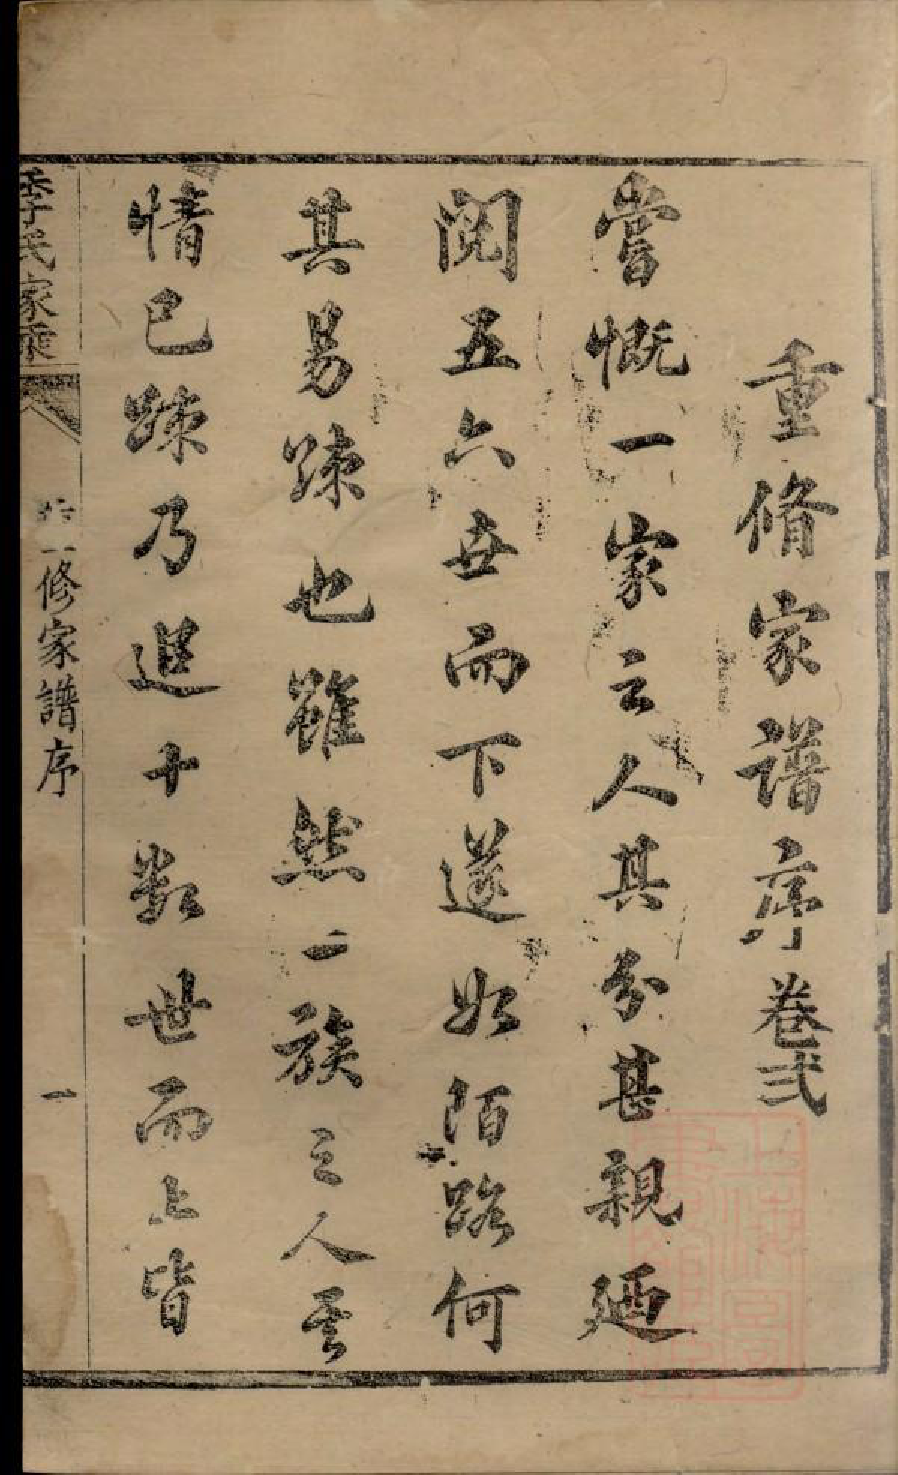 重脩家譜序卷弍
嘗慨一家之人其分甚親廼
閱五六世而下遂如陌路何
其易踈也雖然一族之人
情已踈乃追十數世而上皆
季氏家乘
修家譜序
一